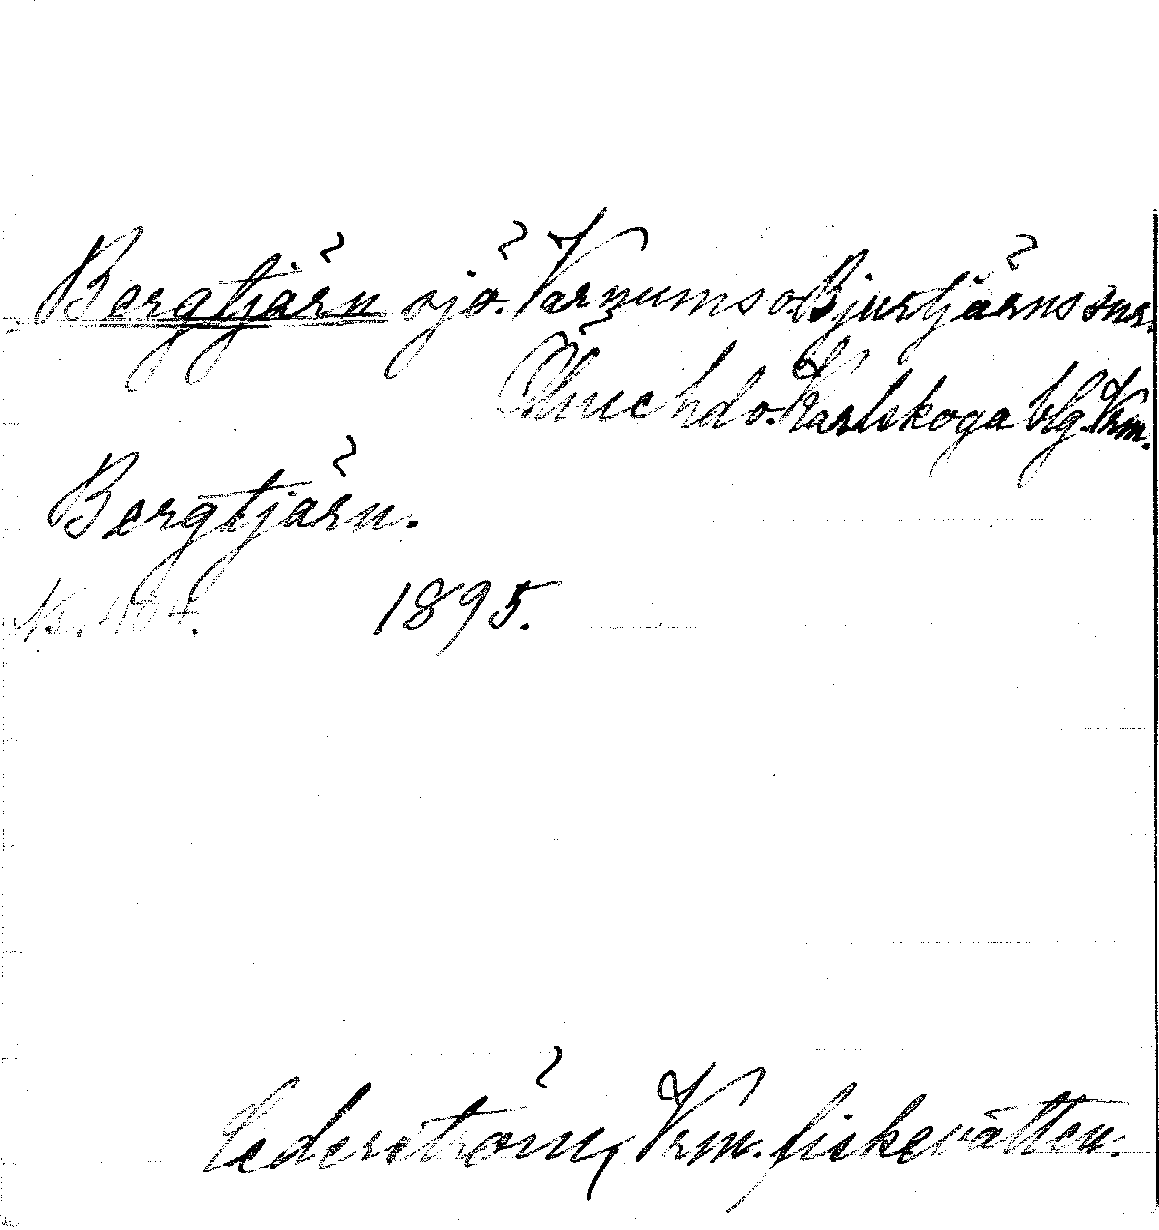 Bergtjärn sjö. Varnums o. Bjurtjärns snr.
Ölme hd o. Karlskoga blg. Vrm.
Bergtjärn.
1895.
Cederström, Vrm. fiskevatten.